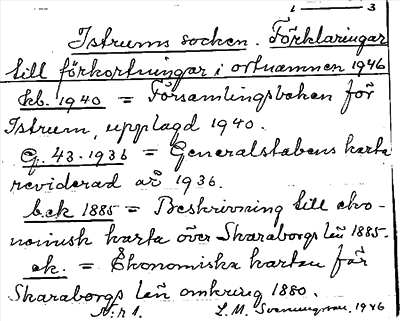 1 — 3
Istrums socken. Förklaringar
till förkortningar i ortnamnen 1946
kb. 1940 = Församlingsboken för
Istrum, upplagd 1940.
G. 43. 1936 = Generalstabens karta
reviderad år 1936.
b.ek 1885 = Beskrivning till eko-
nomisk karta över Skaraborgs län 1885.
ek. = Ekonomiska kartan för
Skaraborgs län omkring 1880.
N:r 1. L. M. Svenungsson, 1946